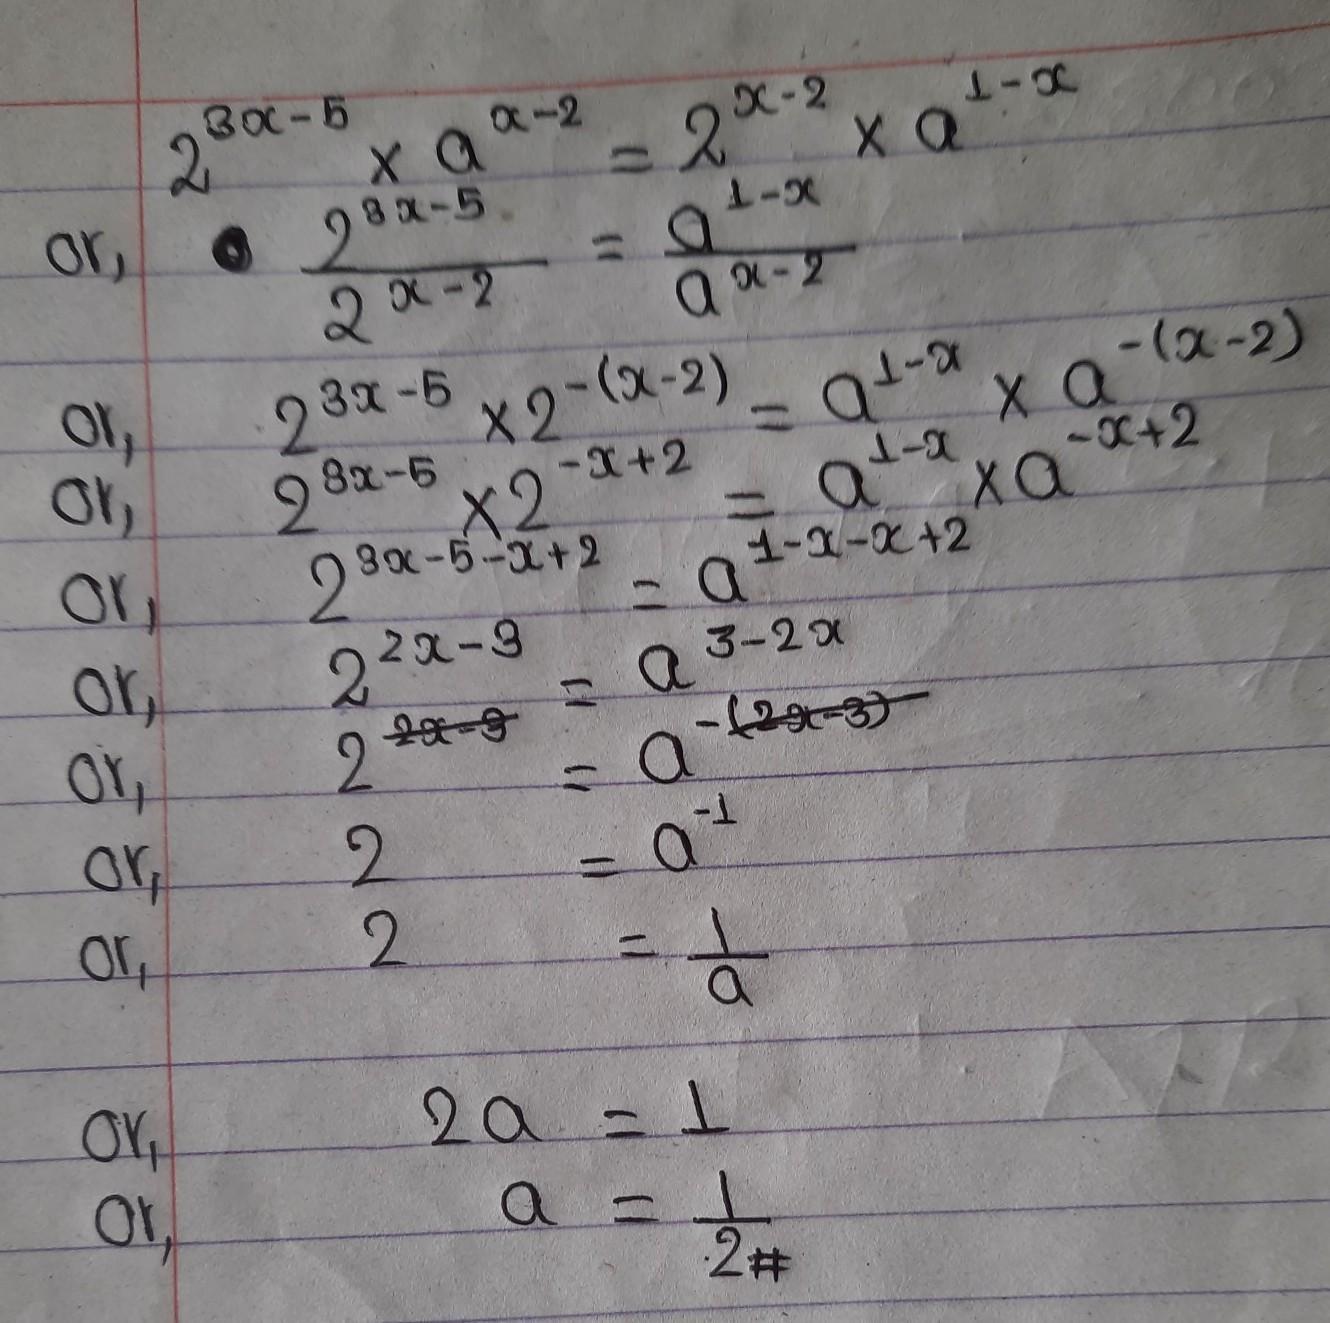 2^{3x-5} × a^{x-2} = 2^{x-2} × a^{1-x}
or, \frac{2^{3x-5}}{2^{x-2}} = \frac{a^{1-x}}{a^{x-2}}
or, 2^{3x-5} × 2^{-(x-2)} = a^{1-x} × a^{-(x-2)}
or, 2^{3x-5} × 2^{-x+2} = a^{1-x} × a^{-x+2}
or, 2^{3x-5-x+2} = a^{1-x-x+2}
or, 2^{2x-3} = a^{3-2x}
or, 2^{2x-3} = a^{-(2x-3)}
or, 2 = a^{-1}
or, 2 = \frac{1}{a}
or, 2a = 1
or, a = \frac{1}{2} #